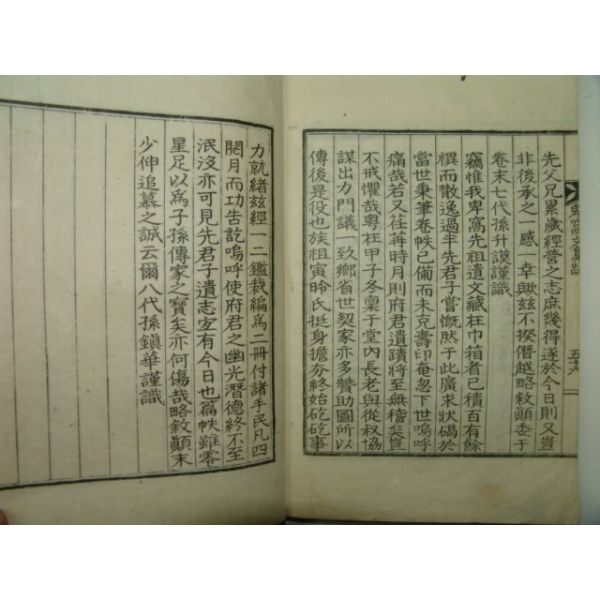 先父兄累歲經營之志庶幾得遂於今日則又豈
非後承之一感一幸歟玆不揆僭越略敘顚委于
卷末七代孫升謨謹識
竊惟我卑窩先祖遺文藏在巾箱者已積百有餘
禩而散逸過半先君子嘗慨然于此廣求狀碣於
當世秉筆卷帙已備而未克壽印奄忽下世嗚呼
痛哉若又荏苒時月則府君遺蹟將至無稽矣豈
不戒懼哉粤在甲子冬稟于堂內長老與從叔協
謀出力門議一致鄕省世契家亦多贊助圖所以
傳後是役也族祖寅昤氏挺身擔夯終始矻矻事
力就緖玆經一二鑑栽編爲二冊付諸手民凡四
閱月而功告訖嗚呼使府君之幽光潛德終不至
泯沒亦可見先君子遺志定有今日也篇帙雖零
星足以爲子孫傳家之寶矣亦何傷哉略敘顚末
少伸追慕之誠云爾八代孫鎭華謹識